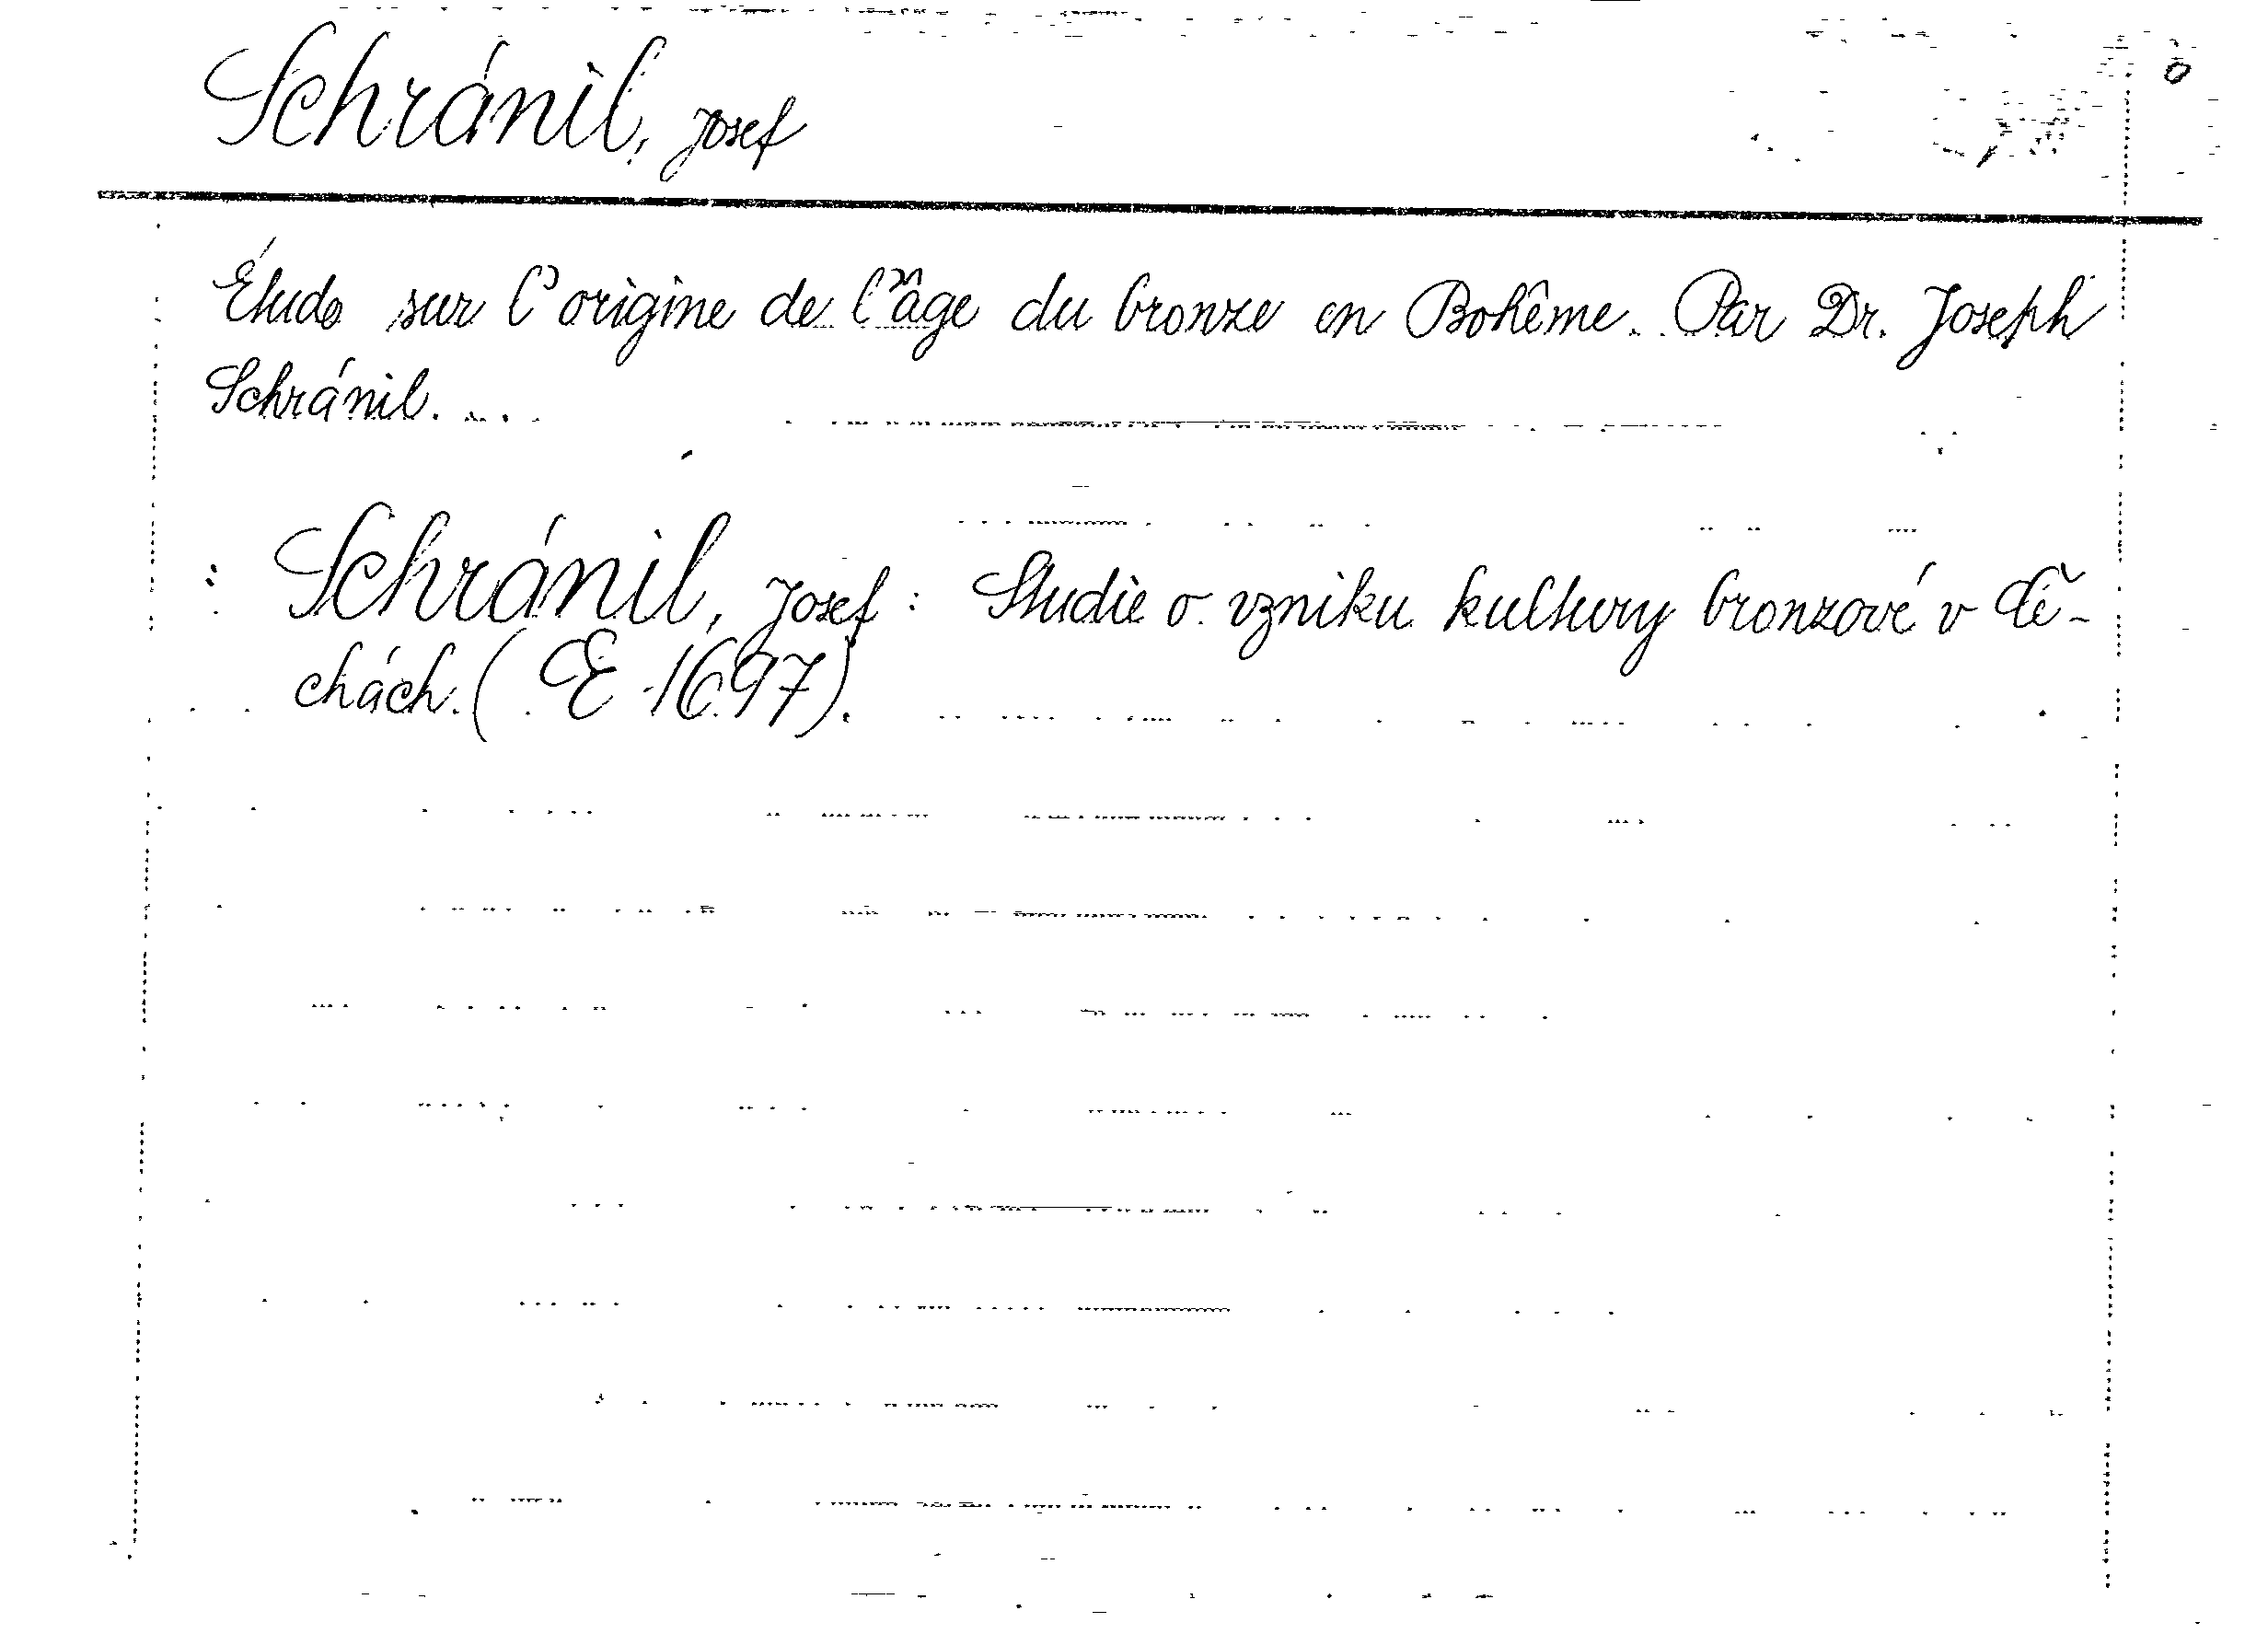 Schránil, Josef
Étude sur l'origine de l'âge du bronze en Bohême. Par Dr. Joseph
Schránil....
: Schránil, Josef: Studie o vzniku kultury bronzové v Če-
chách. (E 1697).